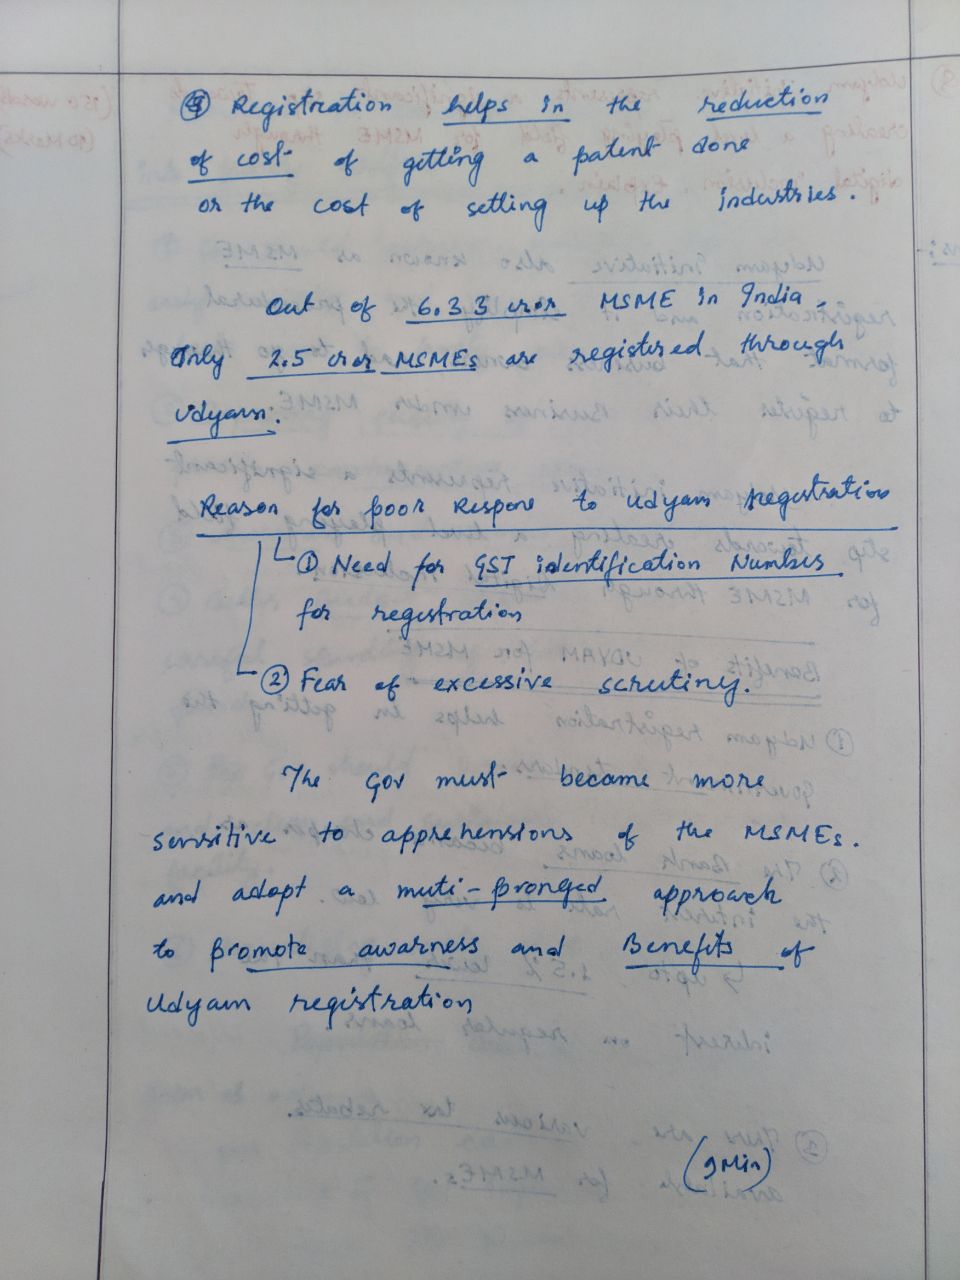 ④ Registration helps in the reduction
of cost of getting a patent done
or the cost of setting up the industries.
Out of 6.33 cror MSME in India,
Only 2.5 cror MSMEs are registered through
Udyam.
Reason for poor Respone to Udyam registration
① Need for GST identification Number
for registration
② Fear of excessive scrutiny.
The Gov must became more
sensitive to apprehensions of the MSMEs.
and adopt a muti-pronged approach
to promote awarness and Benefits of
Udyam registration
(9 Min)